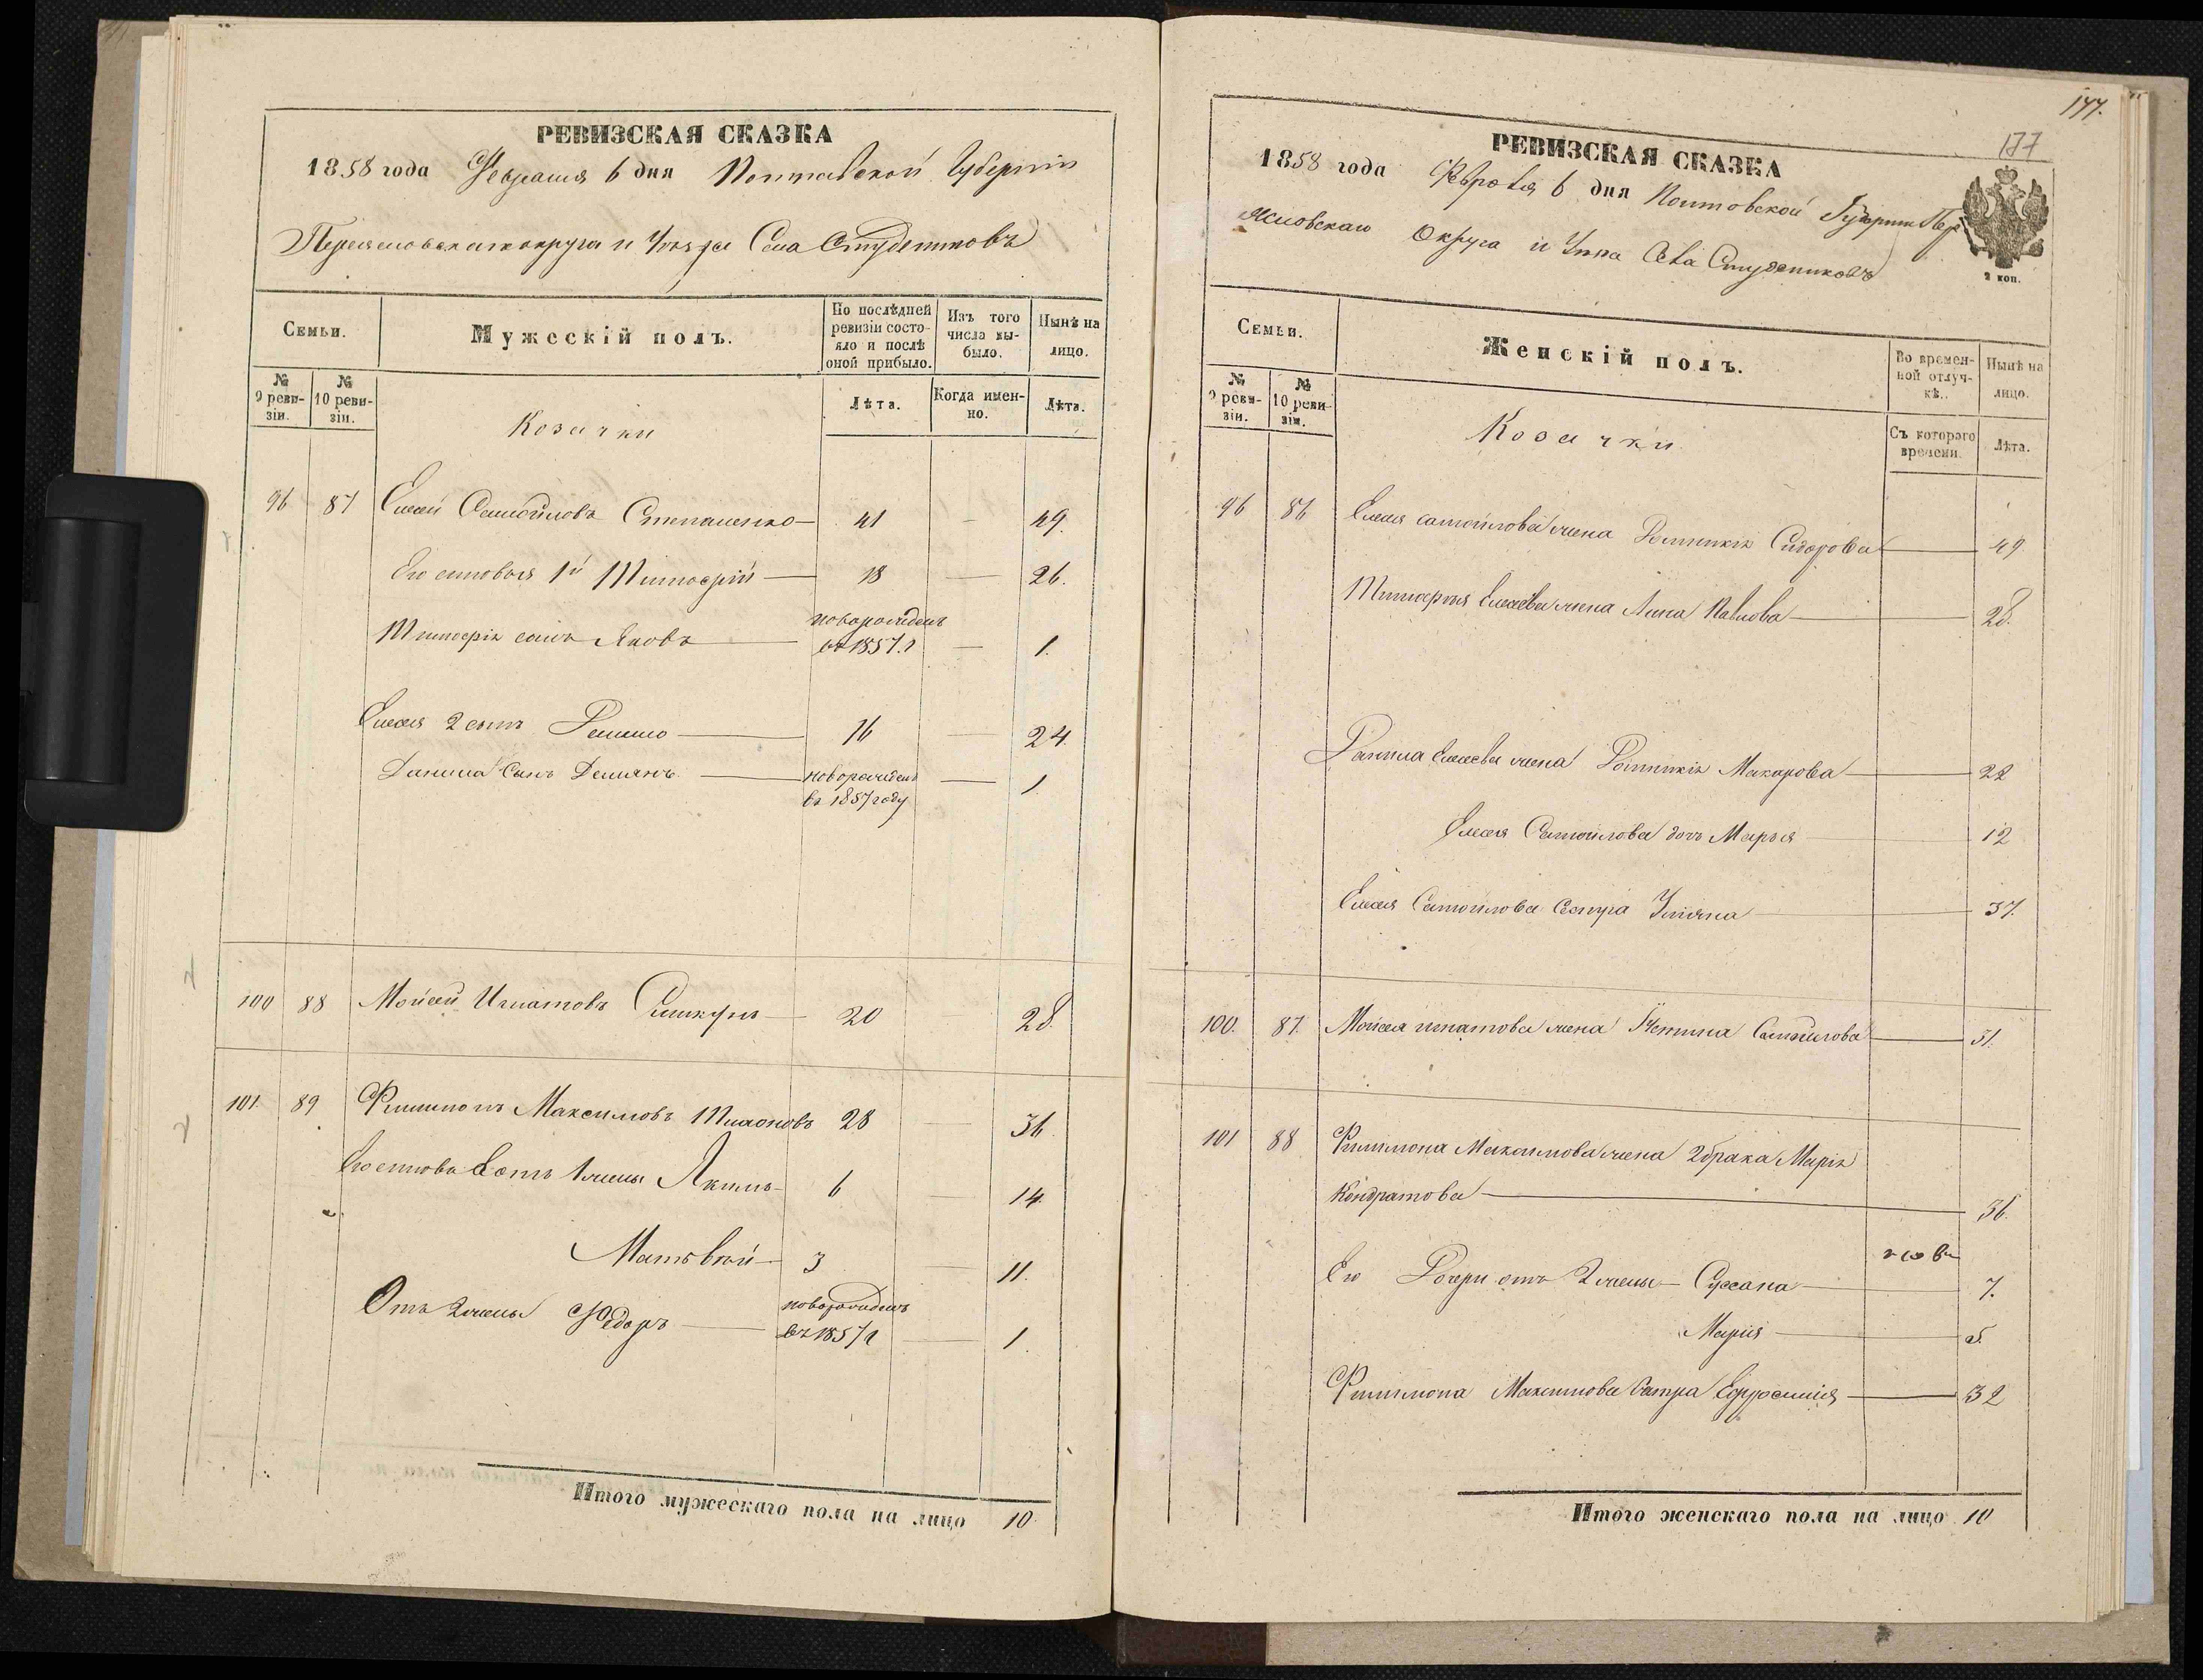 РЕВИЗСКАЯ СКАЗКА
1858 года Февраля 6 дня Полтавской Губерніи
Переясловскаго округа и Уезда Села Студениковъ
Семьи.
Мужескій полъ.
По послѣдней ревизіи состояло и послѣ оной прибыло.
Изъ того числа выбыло.
Нынѣ на лицо.
№ 9 ревизіи.
№ 10 ревизіи.
Козачки
Лѣта.
Когда именно.
Лѣта.
96 87 Елисей Самойловъ Степаненко 41 49.
Его сыновья 1й Тимофій 18 26.
Тимофія сынъ Яковъ новорожденъ въ 1857.г 1.
Елисея 2 сынъ Данило 16 24.
Данила Сынъ Демянъ новорожденъ въ 1857 году 1
100 88 Мойсей Игнатовъ 20 28.
101. 89 Филимонъ Максимовъ Тихоновъ 28 36.
Его сыновья отъ 1 жены 6 14.
Матвѣй 3 11.
Отъ 2 жены Федоръ новорожденъ въ 1857 г 1.
Итого мужескаго пола на лицо 10
177.
177
РЕВИЗСКАЯ СКАЗКА
1858 года Февраля 6 дня Полтовской Губерніи Пере
ясловскаго Округа и Уезда Села Студениковъ
2 коп.
Семьи.
Женскій полъ.
Во временной отлучкѣ.
Нынѣ на лицо.
№ 9 ревизіи.
№ 10 ревизіи.
Козачки
Съ котораго времени.
Лѣта.
96 86 Елисея самойлова жена Домникія Сидорова 49
Тимофія Елисеева жена Анна Павлова 28.
Данила Елисеева жена Домникія Макарова 22
Елисея Самойлова дочь Марья 12
Елисея Самойлова Сестра Ульяна 37.
100. 87. Мойсея игнатова жена Устина Самойлова 31.
101 88 Филимона Максимова жена 2 брака Марія
Кондратова 36.
Его Дочери отъ 2 жены Сусана 7.
Марія 5.
Филимона Максимова Сестра Ефросинія 32
Итого женскаго пола на лицо 10